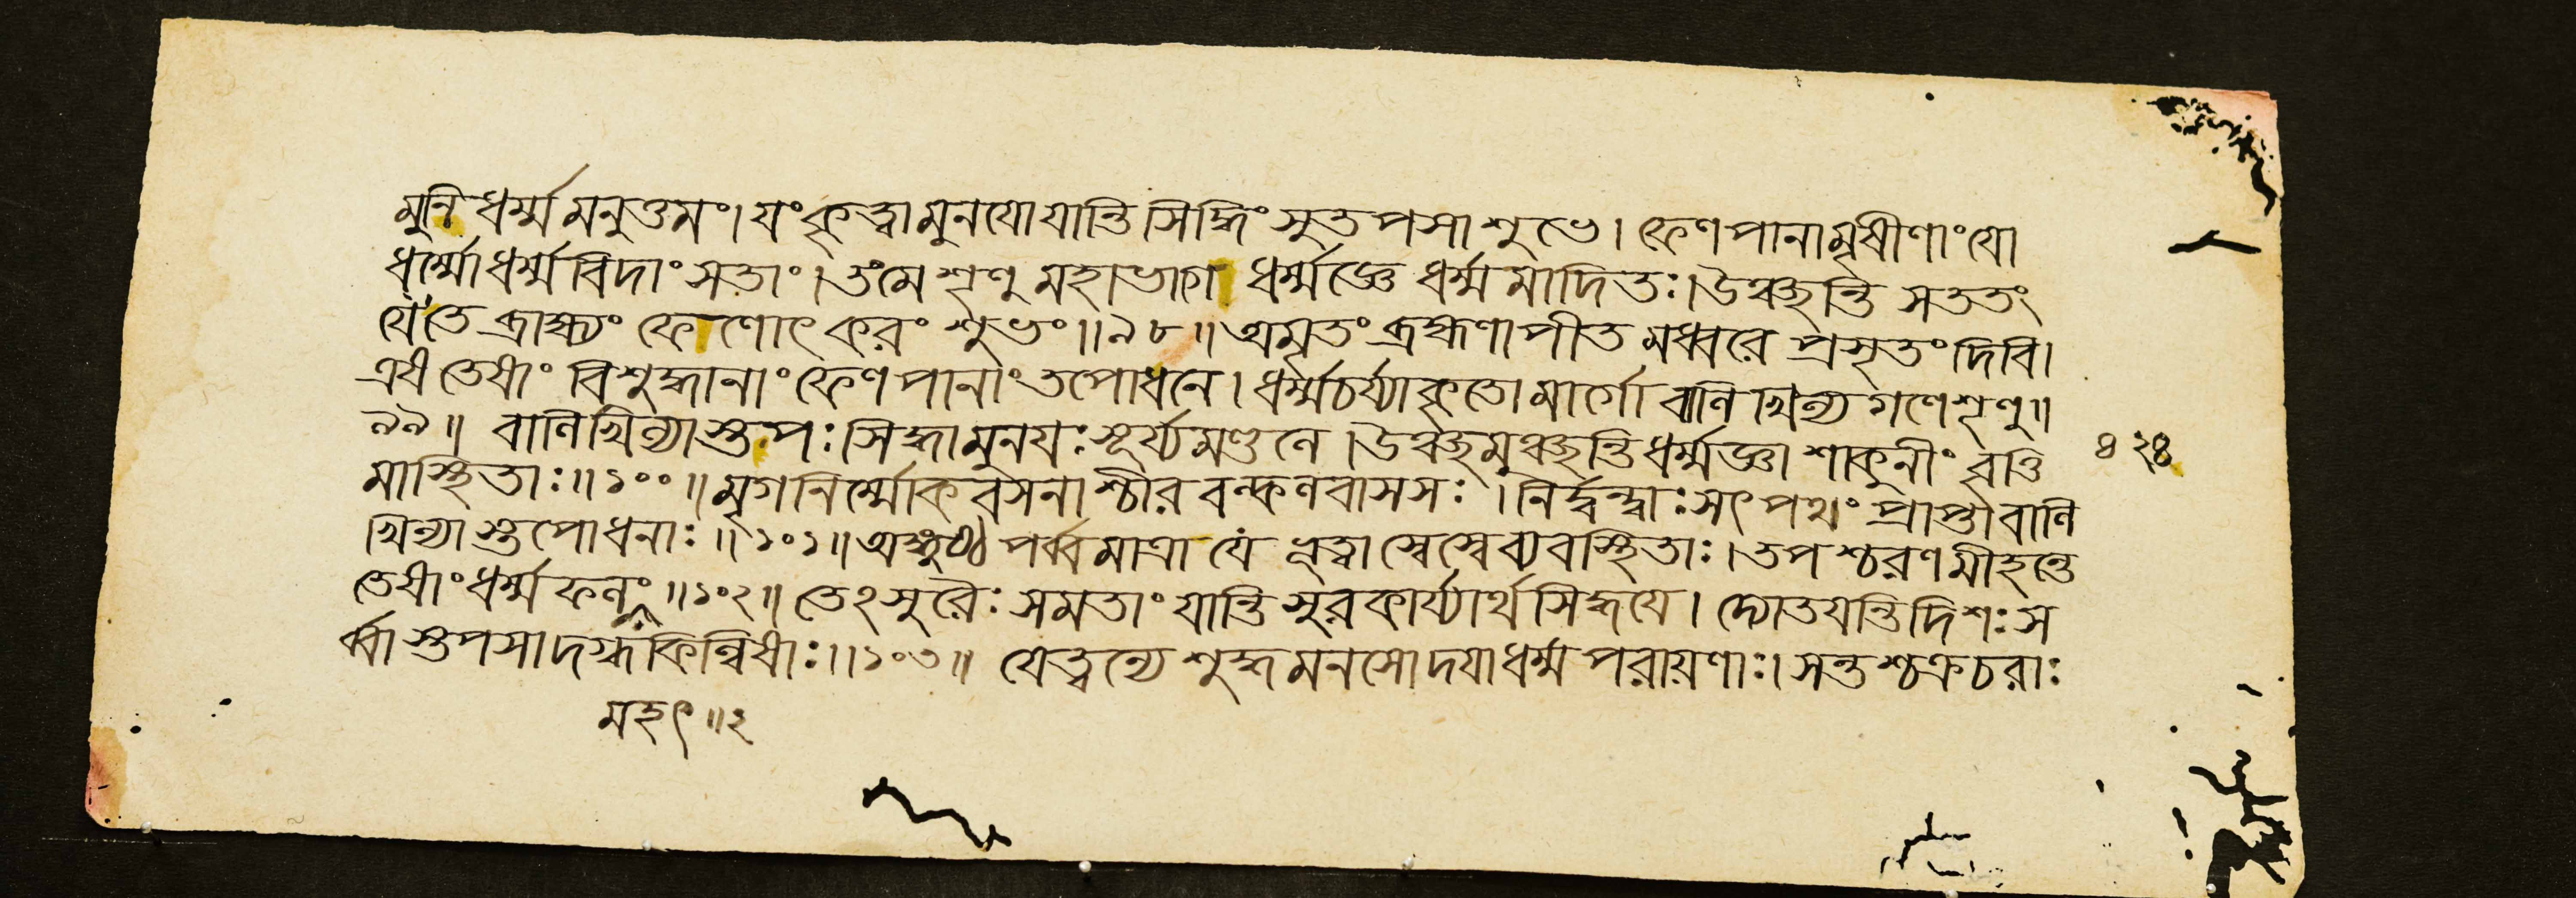 মুনি ধর্ম্ম মনুত্তমং। যং কৃত্বা মুনযো যান্তি সিদ্ধিং সুতপসা শুভে। ফেণপানামৃষীণাং যো
ধর্ম্মো ধর্ম্মবিদাং সতাং। তং মে শৃণু মহাভাগে ধর্ম্মজ্ঞে ধর্ম্ম মাদিতঃ। উঞ্ছন্তি সততং
যে তে ব্রাহ্ম্যং ফেণোৎকরং শুভং॥৯৮॥ অমৃতং ব্রহ্মণা পীত মধ্বরে প্রসৃতং দিবি।
এষ তেষাং বিশুদ্ধানাং ফেণপানাং তপোধনে। ধর্ম্মচর্য্যাকৃতো মার্গো বালিখিল্যগণে শৃণু॥
৯৯॥ বালিখিল্যাস্তপঃসিদ্ধা মুনযঃ সূর্য্যমণ্ডলে। উঞ্ছমুঞ্ছন্তি ধর্ম্মজ্ঞা শাকুনীং বৃত্তি
মাস্থিতাঃ॥১০০॥ মৃগনির্ম্মোকবসনাশ্চীরবল্কলবাসসঃ। নির্দ্বন্দ্বাঃ সৎপথং প্রাপ্তা বালি
খিল্যাস্তপোধনাঃ॥১০১॥ অঙ্গুষ্ঠপর্ব্বমাত্রা যে ভূত্বা স্বে স্বে ব্যবস্থিতাঃ। তপশ্চরণমীহন্তে
তেষাং ধর্ম্মফলং॥১০২॥ তে ২সুরৈঃ সমতাং যান্তি সুরকার্য্যার্থসিদ্ধযে। দ্যোতযন্তি দিশঃ স
র্ব্বা স্তপসা দগ্ধকিল্বিষাঃ॥১০৩॥ যে ত্বন্যে শুদ্ধমনসো দযাধর্ম্মপরায়ণাঃ। সন্তশ্চক্রচরাঃ
মহৎ॥২
৪২৪